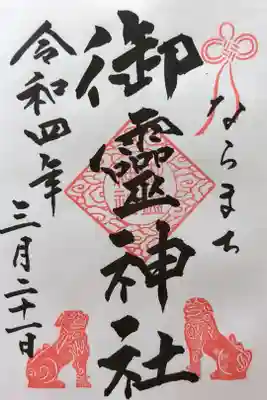 ならまち
御靈神社
令和四年
三月二十一日